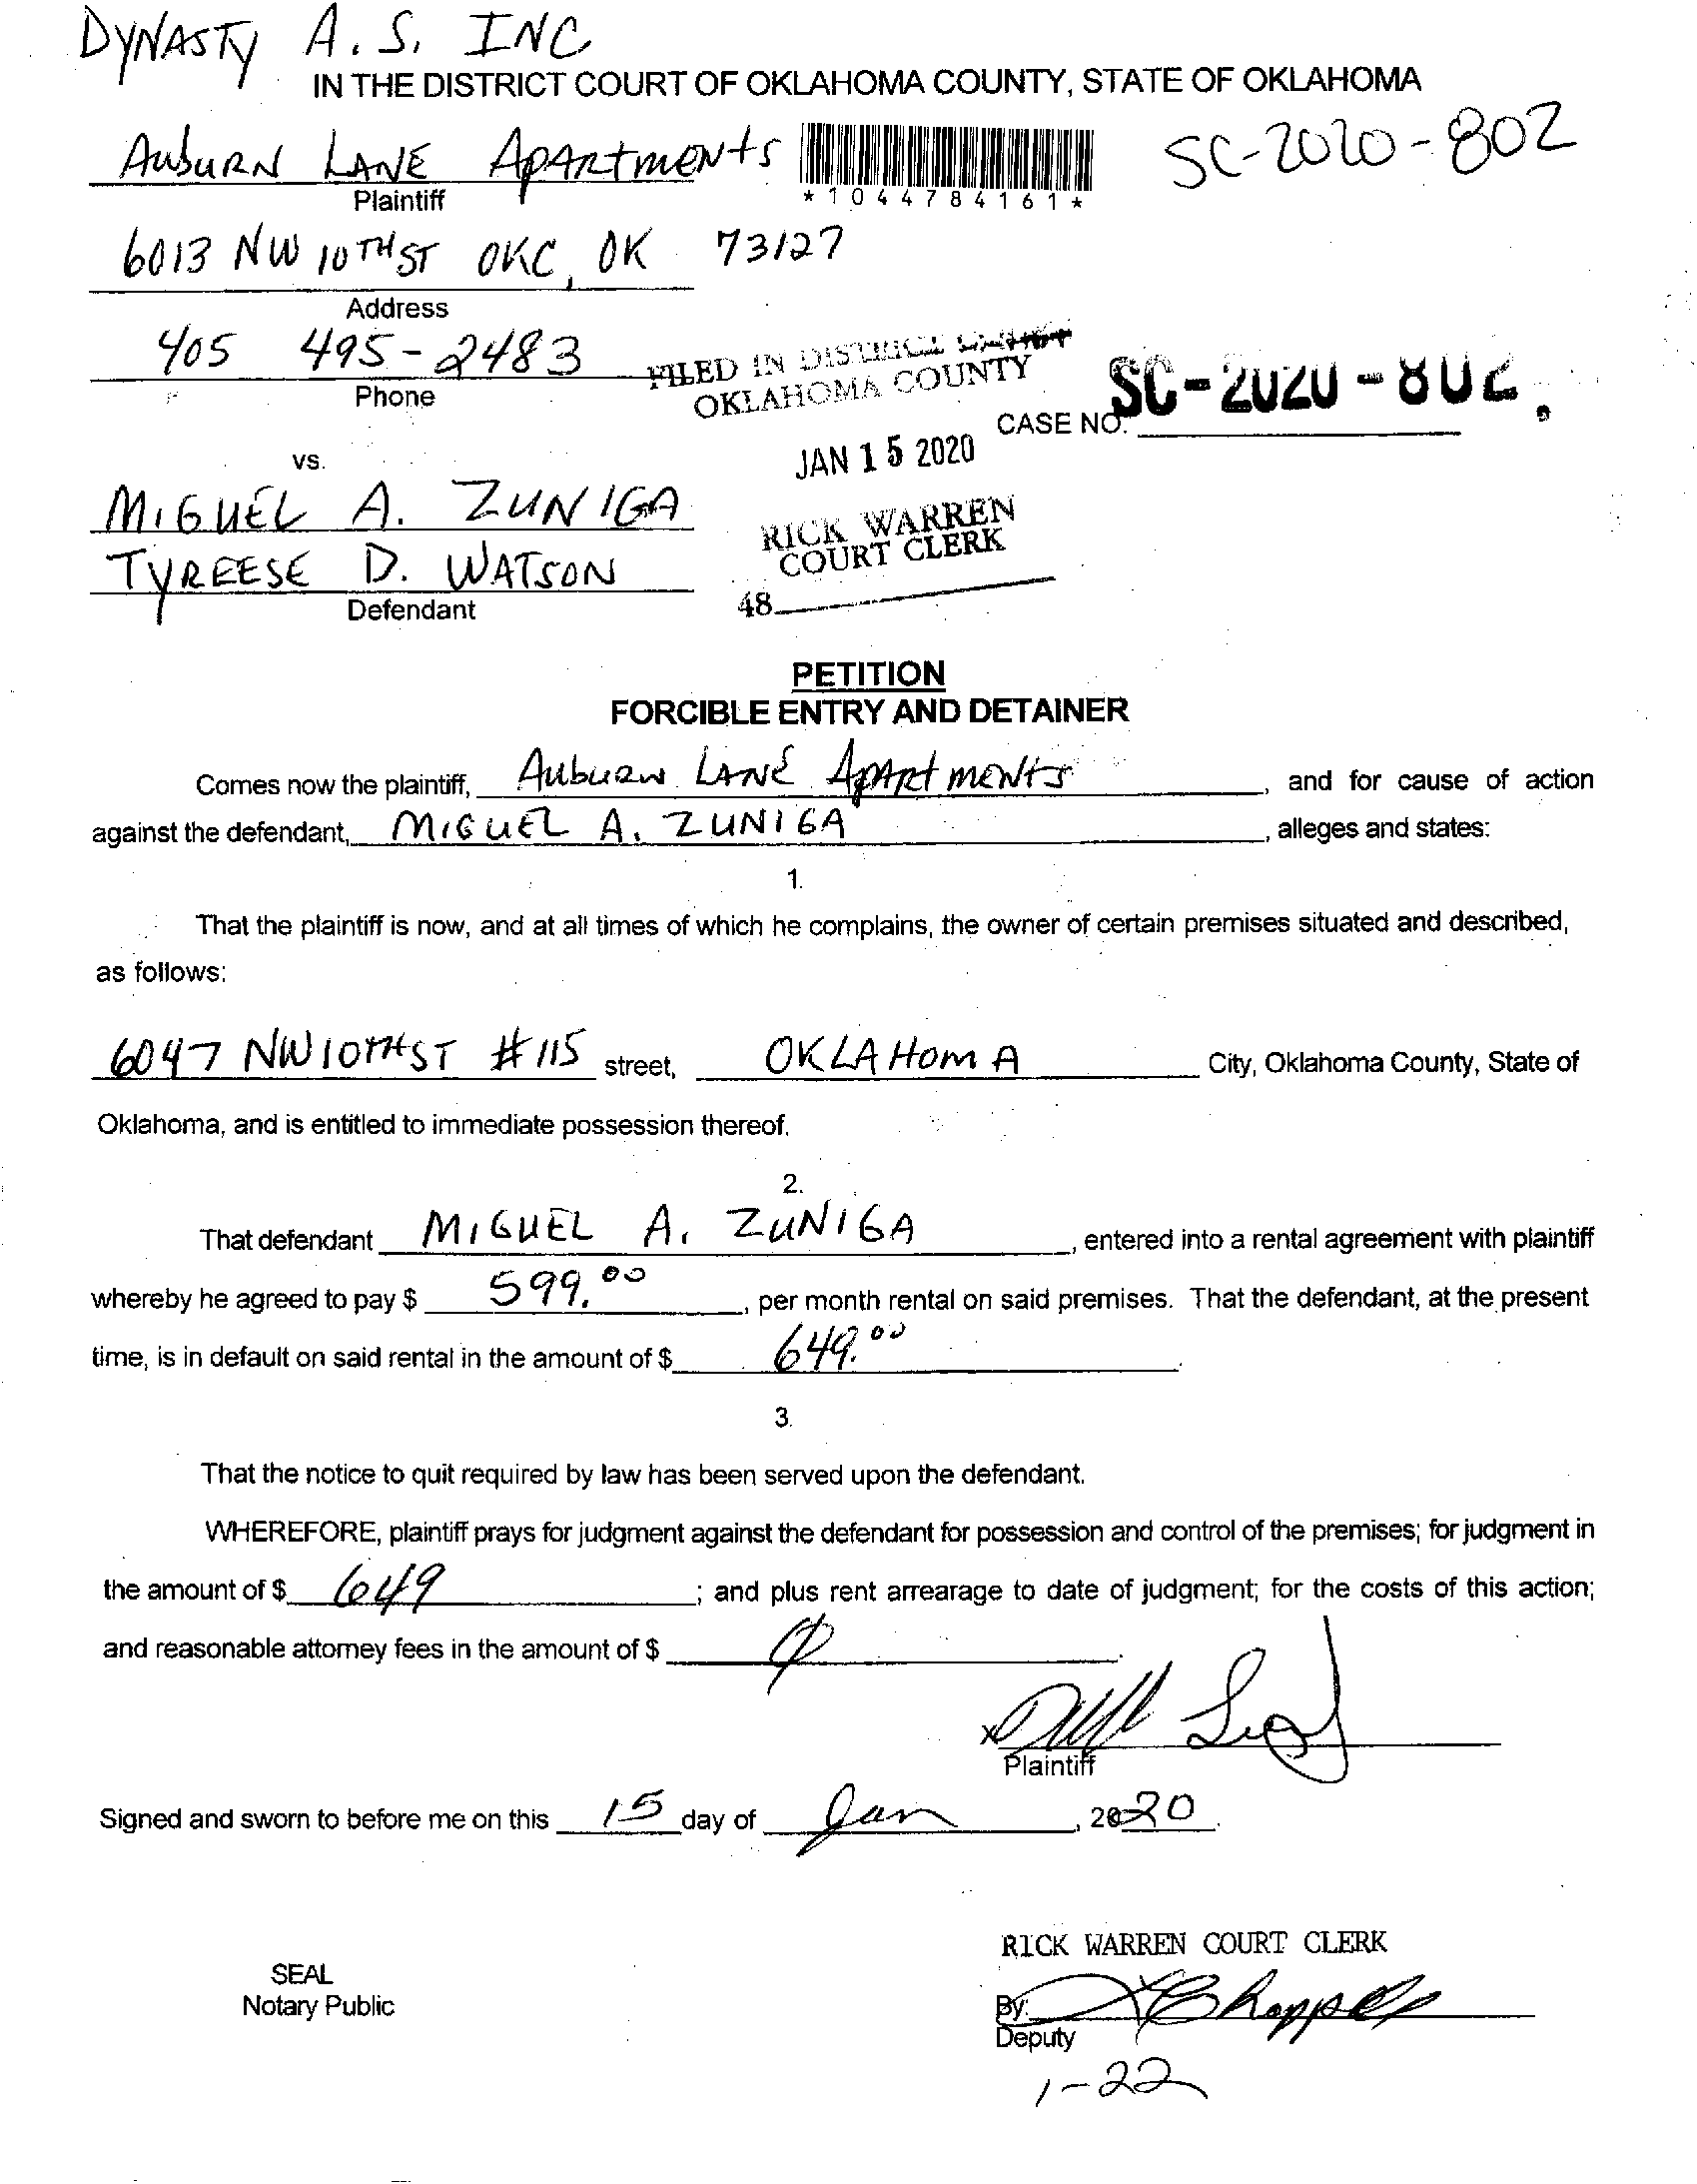 DYNASTY A.S. INC
IN THE DISTRICT COURT OF OKLAHOMA COUNTY, STATE OF OKLAHOMA
AUBURN LANE APARTMENTS
SC-2020-802
Plaintiff
*1044784161*
6013 NW 10TH ST OKC, OK 73127
Address
405 495-2483
Phone
FILED IN DISTRICT COURT
OKLAHOMA COUNTY
CASE NO. SC-2020-802
JAN 15 2020
vs.
MIGUEL A. ZUNIGA
RICK WARREN
COURT CLERK
TYREESE D. WATSON
48
Defendant
PETITION
FORCIBLE ENTRY AND DETAINER
Comes now the plaintiff, Auburn LANE APARTMENTS, and for cause of action
against the defendant, MIGUEL A. ZUNIGA, alleges and states:
1.
That the plaintiff is now, and at all times of which he complains, the owner of certain premises situated and described,
as follows:
6047 NW 10TH ST #115 street, OKLAHOMA City, Oklahoma County, State of
Oklahoma, and is entitled to immediate possession thereof.
2.
That defendant MIGUEL A. ZUNIGA, entered into a rental agreement with plaintiff
whereby he agreed to pay $ 599.00, per month rental on said premises. That the defendant, at the present
time, is in default on said rental in the amount of $ 649.00.
3.
That the notice to quit required by law has been served upon the defendant.
WHEREFORE, plaintiff prays for judgment against the defendant for possession and control of the premises; for judgment in
the amount of $ 649; and plus rent arrearage to date of judgment; for the costs of this action;
and reasonable attorney fees in the amount of $ Ø.
x
Plaintiff
Signed and sworn to before me on this 15 day of Jan, 2020.
RICK WARREN COURT CLERK
SEAL
Notary Public
By:
Deputy
1-22